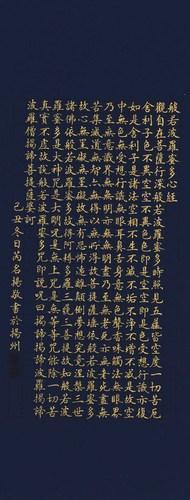 般若波羅蜜多心經
觀自在菩薩行深般若波羅蜜多時照見五蘊皆空度一切苦厄
舍利子色不異空空不異色色即是空空即是色受想行識亦復
如是舍利子是諸法空相不生不滅不垢不淨不增不減是故空
中無色無受想行識無眼耳鼻舌身意無色聲香味觸法無眼界
乃至無意識界無無明亦無無明盡乃至無老死亦無老死盡無
苦集滅道無智亦無得以無所得故菩提薩埵依般若波羅蜜多
故心無罣礙無罣礙故無有恐怖遠離顛倒夢想究竟涅槃三世
諸佛依般若波羅蜜多故得阿耨多羅三藐三菩提故知般若波
羅蜜多是大神咒是大明咒是無上咒是無等等咒能除一切苦
真實不虛故說般若波羅蜜多咒即說咒曰揭諦揭諦波羅揭諦
波羅僧揭諦菩提薩婆訶
己丑冬日芮名揚敬書於揚州